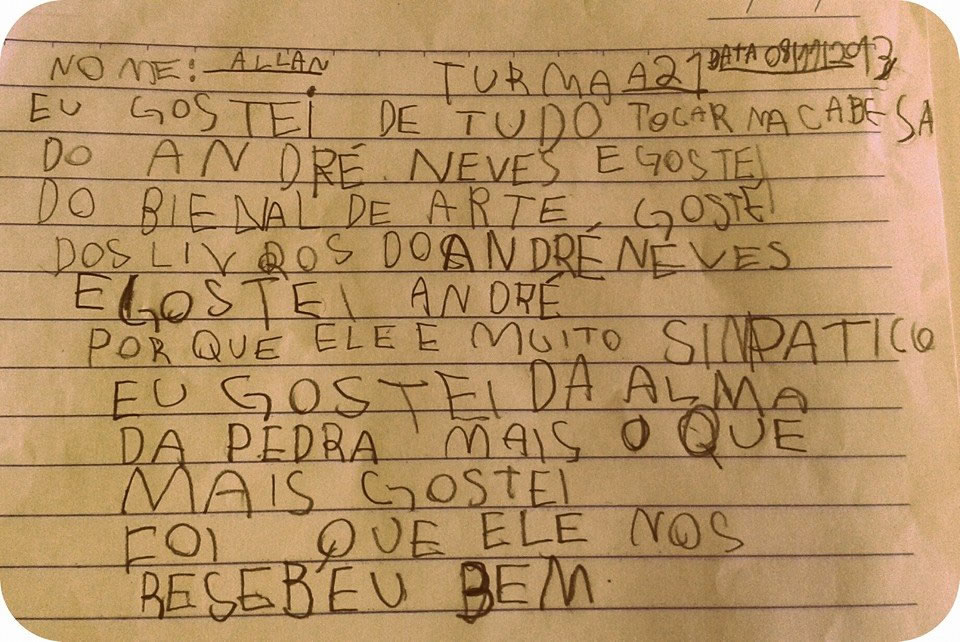 NOME: ALLAN TURMA A21 DATA 08/11/2013
EU GOSTEI DE TUDO TOCAR NA CABESA
DO ANDRÉ. NEVES E GOSTEI
DO BIENAL DE ARTE. GOSTEI
DOS LIVROS DO ANDRÉ NEVES
E GOSTEI ANDRÉ
POR QUE ELE E MUITO SINPATICO
EU GOSTEI DA ALMA
DA PEDRA MAIS O QUE
MAIS GOSTEI
FOI QUE ELE NOS
RESEBEU BEM.